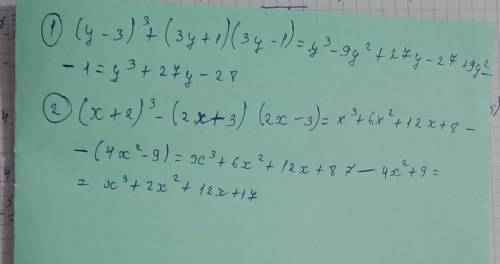 ① (y-3)³+(3y+1)(3y-1)=y³-9y²+27y-27+9y²-
-1=y³+27y-28
② (x+2)³-(2x+3) (2x-3)=x³+6x²+12x+8-
-(4x²-9)=x³+6x²+12x+8 7-4x²+9=
= x³+2x²+12x+17